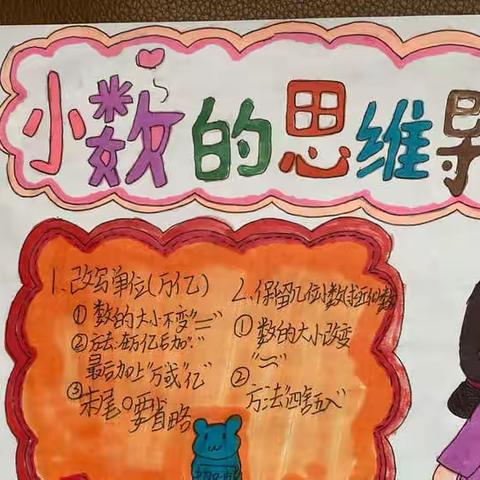 小数的思维导
1、改写单位(万亿)
①数的大小不变"="
②方法:在万亿后加"."
最后加上"万"或"亿"
③末尾0要省略
2、保留几位小数(求近似数)
①数的大小改变
"≈"
②
方法"四舍五入"